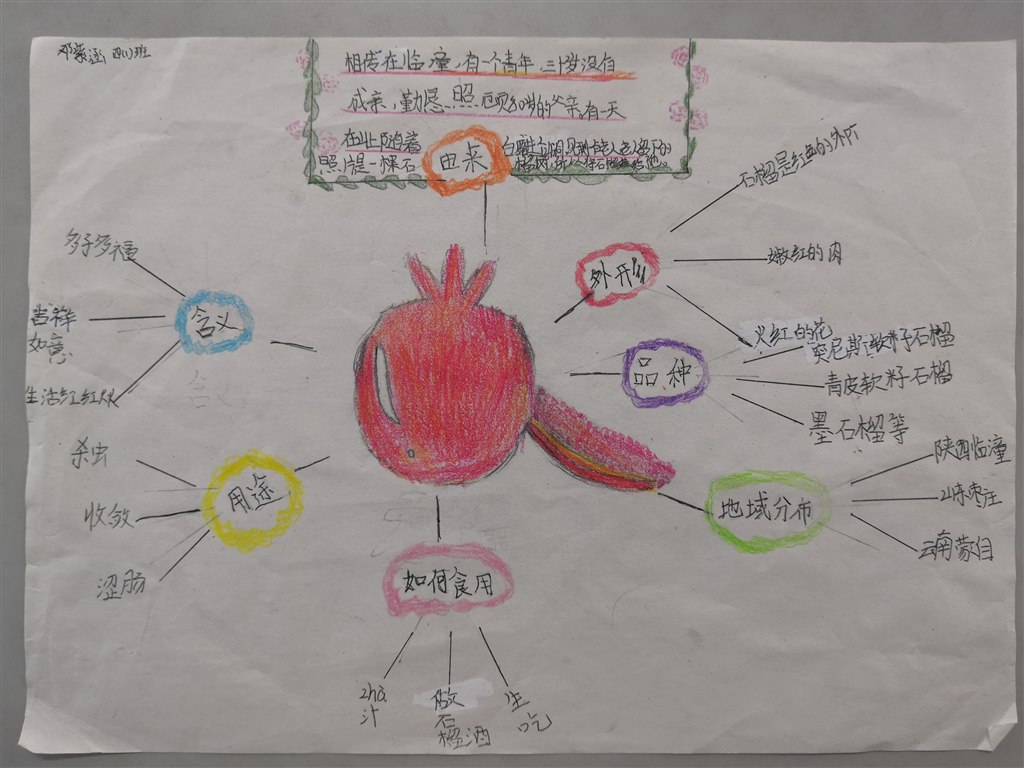 邓蒙涵 四(1)班
相传在临潼,有一个青年,三十岁没有
成亲,勤恳照顾80岁的父亲,有一天
在山上
照 是一棵石
由来
外形
石榴是红色的外
嫩红的肉
火红的花
品种
突尼斯软籽石榴
青皮软籽石榴
墨石榴等
地域分布
陕西临潼
山东枣庄
云南蒙自
如何食用
zhà
汁
做
石
榴酒
生
吃
用途
杀虫
收敛
涩肠
含义
多子多福
吉祥
如意
生活红红火